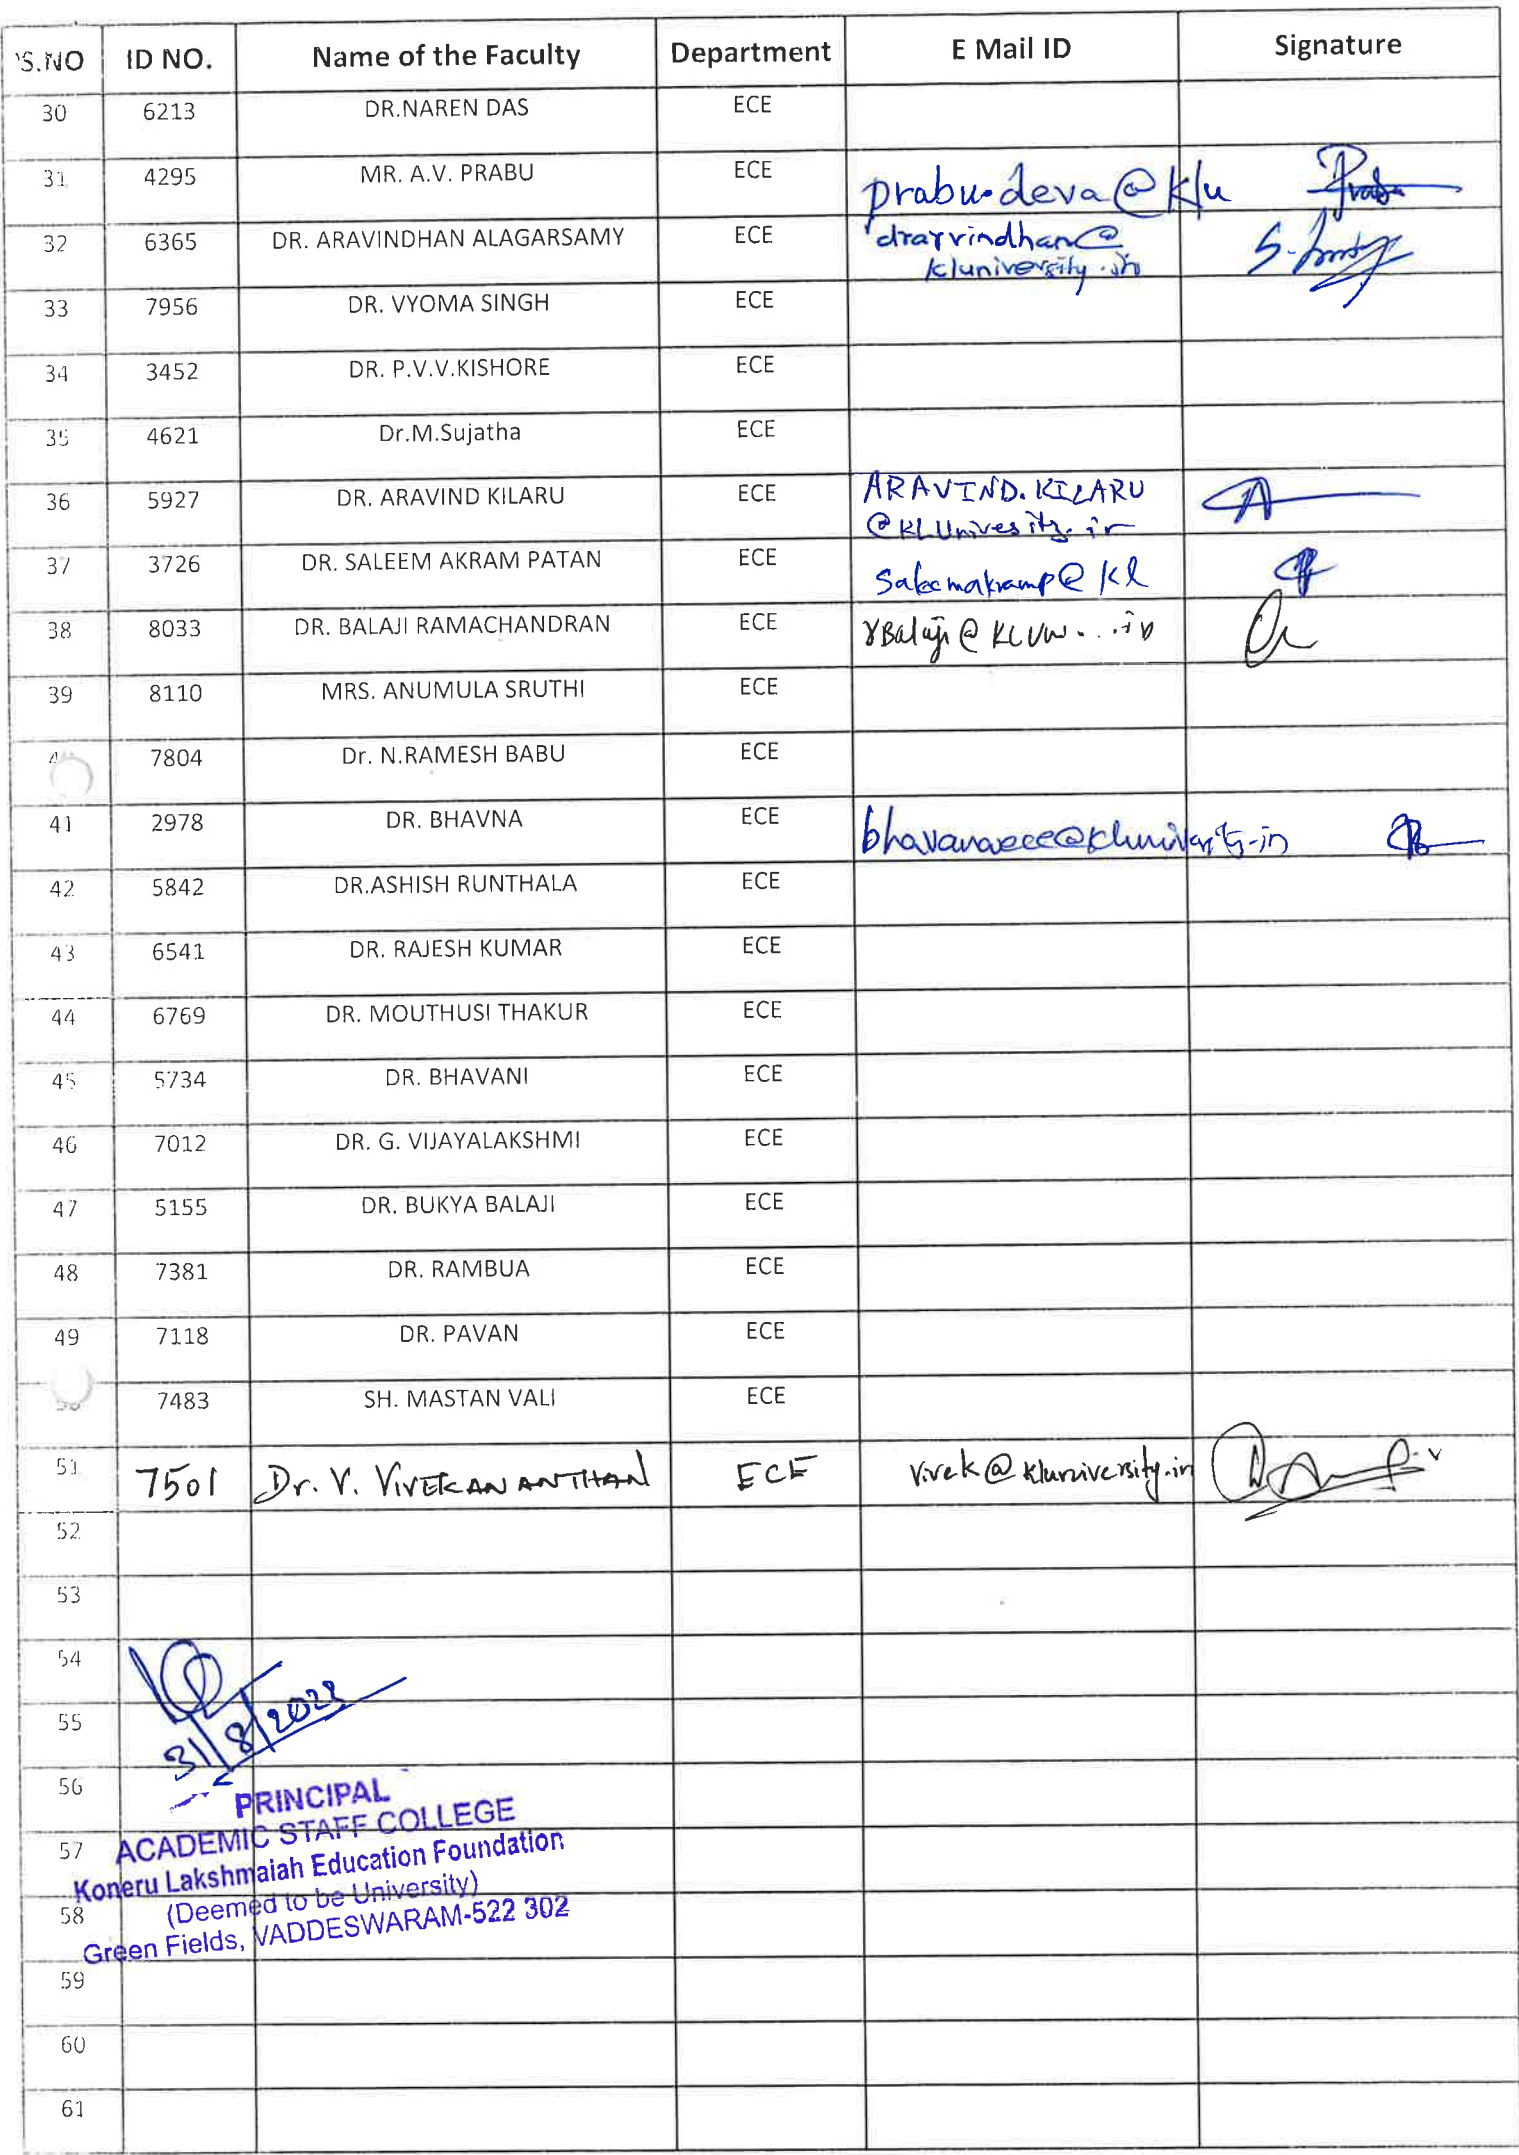 S.NO ID NO. Name of the Faculty Department E Mail ID Signature
30 6213 DR.NAREN DAS ECE
31 4295 MR. A.V. PRABU ECE prabu.deva@klu Prabu
32 6365 DR. ARAVINDHAN ALAGARSAMY ECE drarvindhan@
kluniversity.in
33 7956 DR. VYOMA SINGH ECE
34 3452 DR. P.V.V.KISHORE ECE
35 4621 Dr.M.Sujatha ECE
36 5927 DR. ARAVIND KILARU ECE ARAVIND.KILARU
@KLUnivesity.in
37 3726 DR. SALEEM AKRAM PATAN ECE Saleemakramp@kl
38 8033 DR. BALAJI RAMACHANDRAN ECE rBalaji@KLUw...in
39 8110 MRS. ANUMULA SRUTHI ECE
7804 Dr. N.RAMESH BABU ECE
41 2978 DR. BHAVNA ECE bhavanaece@kluniversity.in
42 5842 DR.ASHISH RUNTHALA ECE
43 6541 DR. RAJESH KUMAR ECE
44 6769 DR. MOUTHUSI THAKUR ECE
45 5734 DR. BHAVANI ECE
46 7012 DR. G. VIJAYALAKSHMI ECE
47 5155 DR. BUKYA BALAJI ECE
48 7381 DR. RAMBUA ECE
49 7118 DR. PAVAN ECE
7483 SH. MASTAN VALI ECE
51 7501 Dr. V. VIVEKANANTHAN ECE vivek@kluniversity.in
52
53
54
55
31/8/2022
56
PRINCIPAL
57 ACADEMIC STAFF COLLEGE
Koneru Lakshmaiah Education Foundation
58 (Deemed to be University)
Green Fields, VADDESWARAM-522 302
59
60
61